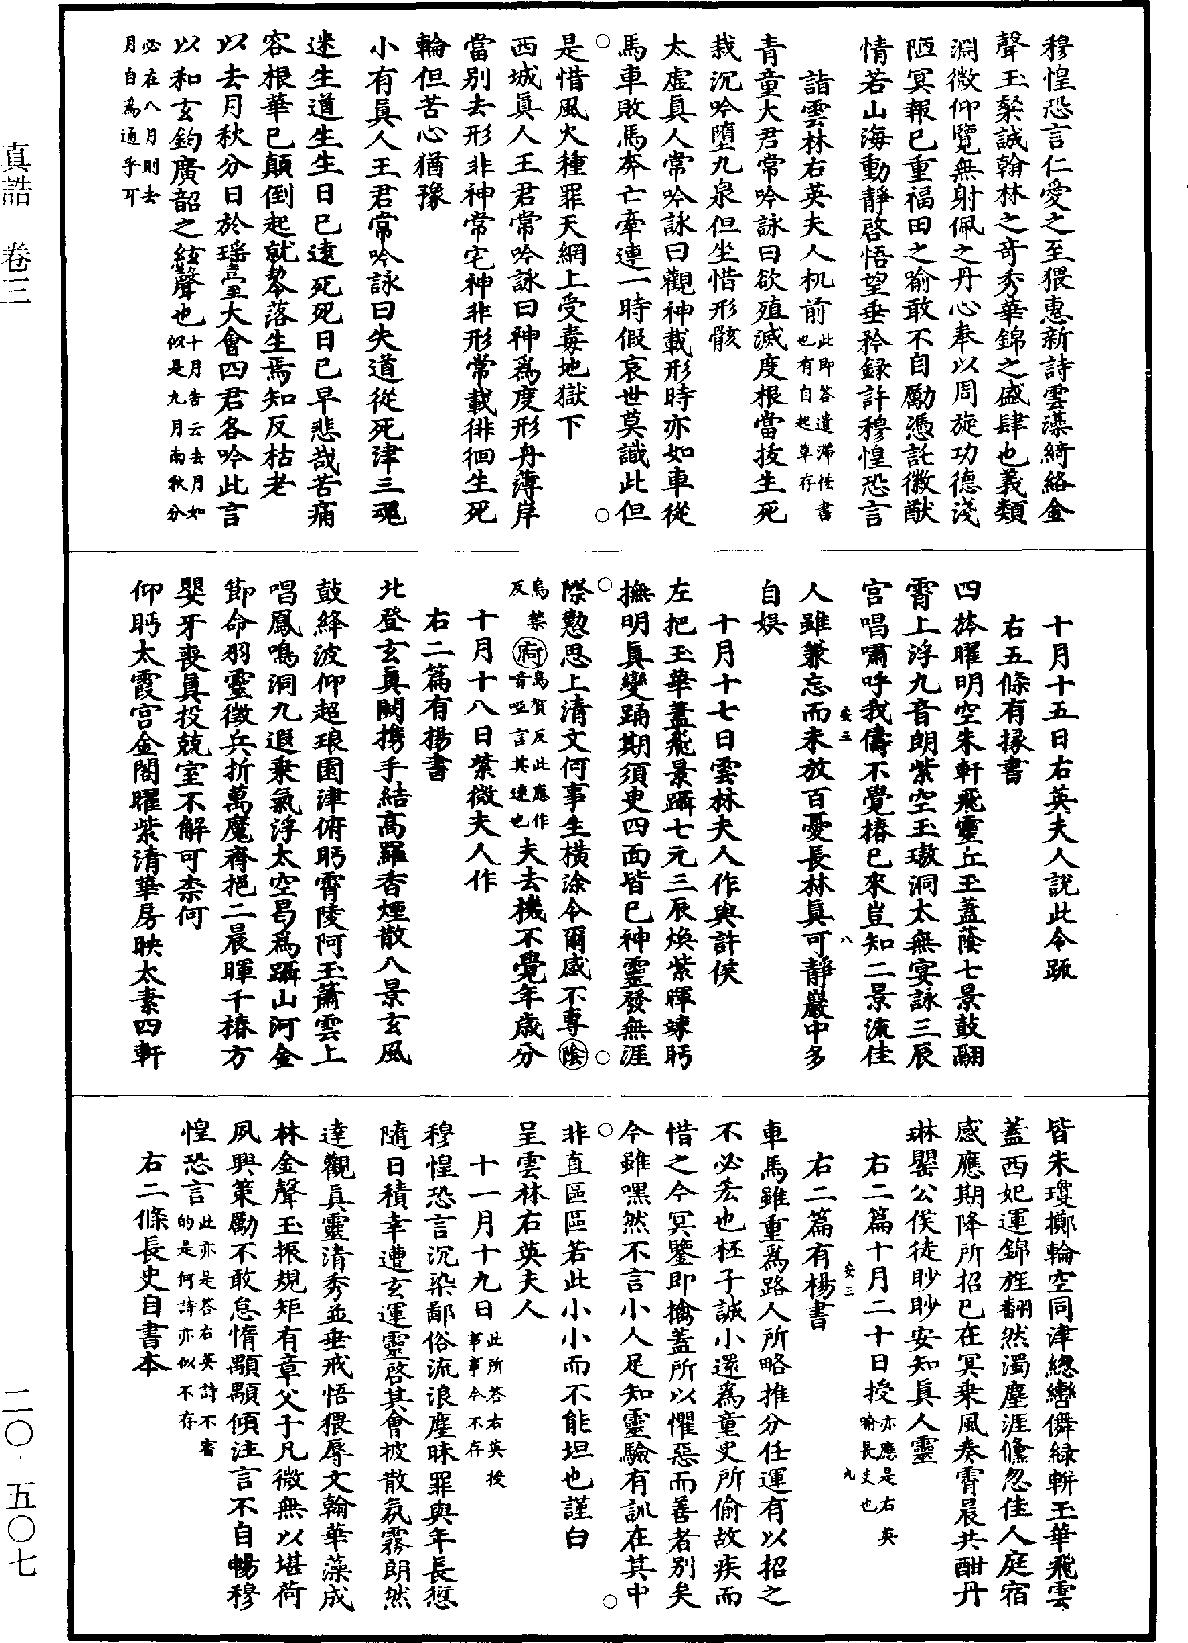 穆惶恐言仁愛之至猥惠新詩雲藻綺絡金
聲玉粲誠翰林之奇秀華錦之盛肆也義類
淵微仰覽無射佩之丹心奉以周旋功德淺
陋冥報已重福田之喻敢不自勵憑託徽猷
情若山海動靜啓悟望垂矜録許穆惶恐言
詣雲林右英夫人机前此即答遣滯徃書
也有自起草存
青童大君常吟詠曰欲殖滅度根當拔生死
栽沉吟墮九泉但坐惜形骸
太虛真人常吟詠曰觀神載形時亦如車從
馬車敗馬奔亡牽連一時假哀世莫識此但
是惜風火種罪天網上受毒地獄下
西城真人王君常吟詠曰神爲度形舟薄岸
當別去形非神常宅神非形常載徘徊生死
輪但苦心猶豫
小有真人王君常吟詠曰失道從死津三魂
迷生道生生日已遠死死日已早悲哉苦痛
容根華已顛倒起就零落生焉知反枯老
以去月秋分日於瑤臺大會四君各吟此言
以和玄鈞廣韶之絃聲也十月告云去月如
似是九月南秋分
必在八月則去
月自爲通乎可
十月十五日右英夫人說此令疏
右五條有掾書
四旌曜明空朱軒飛靈丘玉蓋蔭七景鼓翮
霄上浮九音朗紫空玉璈洞太無宴詠三辰
宮唱嘯呼我儔不覺椿已來豈知二景流佳
人雖兼忘而未放百憂長林真可靜巖中多
自娱
十月十七日雲林夫人作與許侯
左把玉華蓋飛景躡七元三辰煥紫暉竦眄
撫明真變踊期須臾四面皆已神靈發無涯
際懃思上清文何事生橫涂令爾感不專陰
烏禁
反府烏賀反此應作
音啞言其速也夫去機不覺年歲分
十月十八日紫微夫人作
右二篇有楊書
北登玄真闕携手結高羅香煙散八景玄風
鼓絳波仰超琅園津俯眄霄陵阿玉簫雲上
唱鳳鳴洞九遐乘氣浮太空曷爲躡山河金
節命羽靈徵兵折萬魔齊挹二晨暉千椿方
嬰牙喪真投競室不解可柰何
仰眄太霞宮金閣曜紫清華房映太素四軒
皆朱瓊擲輪空同津總轡儛緑軿玉華飛雲
蓋西妃運錦旌翻然濁塵涯儵忽佳人庭宿
感應期降所招已在冥乘風奏霄晨共酣丹
琳罌公侯徒眇眇安知真人靈
右二篇十月二十日授亦應是右英
喻長史也
右二篇有楊書
車馬雖重爲路人所略推分任運有以招之
不必宏也柸子誠小還爲童史所偷故疾而
惜之今冥鑒即擒蓋所以懼惡而善者別矣
今雖嘿然不言小人足知靈驗有訓在其中
非直區區若此小小而不能坦也謹白
呈雲林右英夫人
十一月十九日此所答右英授
事事今不存
穆惶恐言沉染鄙俗流浪塵昧罪與年長愆
隨日積幸遭玄運靈啓其會披散氛霧朗然
達觀真靈清秀並垂戒悟猥辱文翰華藻成
林金聲玉振規矩有章父子凡微無以堪荷
夙興策勵不敢怠惰顒顒傾注言不自暢穆
惶恐言此亦是答右英詩不審
的是何詩亦似不存
右二條長史自書本
真誥　卷三
二〇·五〇七